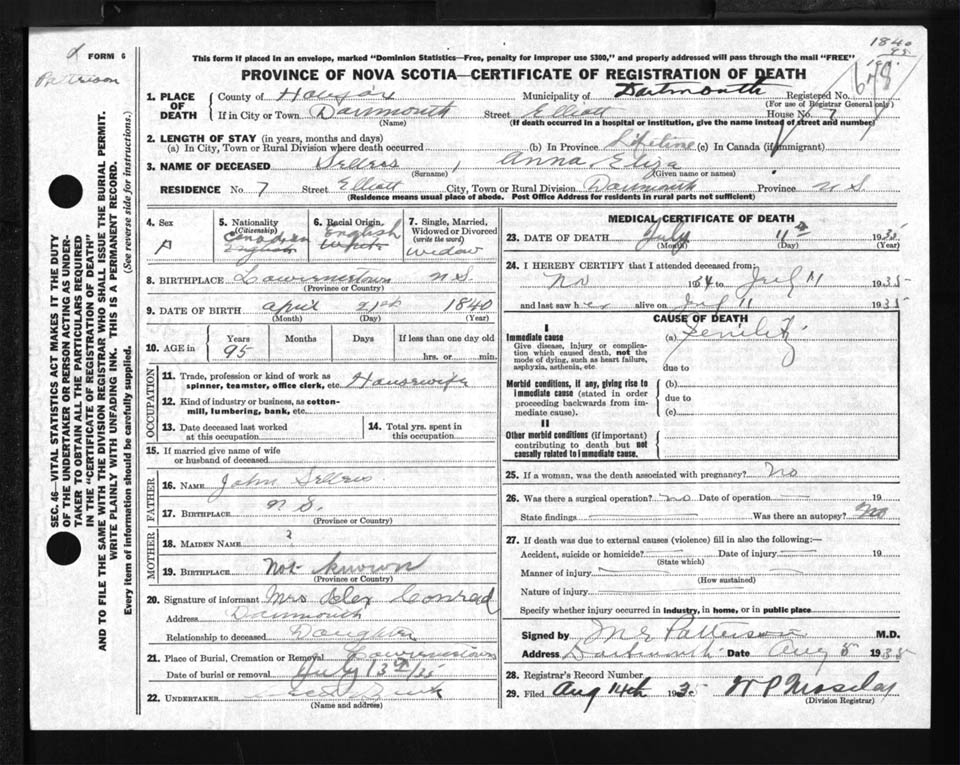 FORM 6
Patterson
1840
95
678
This form if placed in an envelope, marked "Dominion Statistics—Free, penalty for improper use $300," and properly addressed will pass through the mail "FREE"
PROVINCE OF NOVA SCOTIA—CERTIFICATE OF REGISTRATION OF DEATH
1. PLACE OF DEATH County of Halifax Municipality of Dartmouth Registered No.
(For use of Registrar General only)
If in City or Town Dartmouth Street Elliott House No. 7
(Name) (If death occurred in a hospital or institution, give the name instead of street and number)
2. LENGTH OF STAY (in years, months and days)
(a) In City, Town or Rural Division where death occurred (b) In Province Lifetime (c) In Canada (if immigrant)
3. NAME OF DECEASED Sellers, Anna Eliza
(Surname) (Given name or names)
RESIDENCE No. 7 Street Elliott City, Town or Rural Division Dartmouth Province N S
(Residence means usual place of abode. Post Office Address for residents in rural parts not sufficient)
4. Sex F
5. Nationality (Citizenship) Canadian English
6. Racial Origin English White
7. Single, Married, Widowed or Divorced (write the word) Widow
8. BIRTHPLACE Lawrencetown N.S.
(Province or Country)
9. DATE OF BIRTH April 21st 1840
(Month) (Day) (Year)
10. AGE in Years 95 Months Days If less than one day old
hrs. or min.
OCCUPATION
11. Trade, profession or kind of work as spinner, teamster, office clerk, etc. Housewife
12. Kind of industry or business, as cotton-mill, lumbering, bank, etc.
13. Date deceased last worked at this occupation
14. Total yrs. spent in this occupation
15. If married give name of wife or husband of deceased
FATHER
16. NAME John Sellers
17. BIRTHPLACE N.S.
(Province or Country)
MOTHER
18. MAIDEN NAME ?
19. BIRTHPLACE Not known
(Province or Country)
20. Signature of informant Mrs Alex Conrad
Address Dartmouth
Relationship to deceased Daughter
21. Place of Burial, Cremation or Removal Lawrencetown
Date of burial or removal July 13th/35
22. UNDERTAKER
(Name and address)
MEDICAL CERTIFICATE OF DEATH
23. DATE OF DEATH July 11th 1935
(Month) (Day) (Year)
24. I HEREBY CERTIFY that I attended deceased from:
No 1934 to July 11 1935
and last saw her alive on July 11 1935
CAUSE OF DEATH
I
Immediate cause
Give disease, injury or complication which caused death, not the mode of dying, such as heart failure, asphyxia, asthenia, etc.
(a) Senility
due to
Morbid conditions, if any, giving rise to immediate cause (stated in order proceeding backwards from immediate cause).
(b)
due to
(c)
II
Other morbid conditions (if important) contributing to death but not causally related to immediate cause.
25. If a woman, was the death associated with pregnancy? No
26. Was there a surgical operation? no Date of operation — 19
State findings Was there an autopsy? No
27. If death was due to external causes (violence) fill in also the following:—
Accident, suicide or homicide? Date of injury 19
(State which)
Manner of injury
(How sustained)
Nature of injury
Specify whether injury occurred in industry, in home, or in public place
Signed by M G Patterson M.D.
Address Dartmouth Date Aug 5 1935
28. Registrar's Record Number
29. Filed Aug 14th 1935
(Division Registrar)
SEC. 46—VITAL STATISTICS ACT MAKES IT THE DUTY
OF THE UNDERTAKER OR PERSON ACTING AS UNDER-
TAKER TO OBTAIN ALL THE PARTICULARS REQUIRED
IN THE "CERTIFICATE OF REGISTRATION OF DEATH"
AND TO FILE THE SAME WITH THE DIVISION REGISTRAR WHO SHALL ISSUE THE BURIAL PERMIT.
WRITE PLAINLY WITH UNFADING INK. THIS IS A PERMANENT RECORD.
Every item of information should be carefully supplied. (See reverse side for instructions).